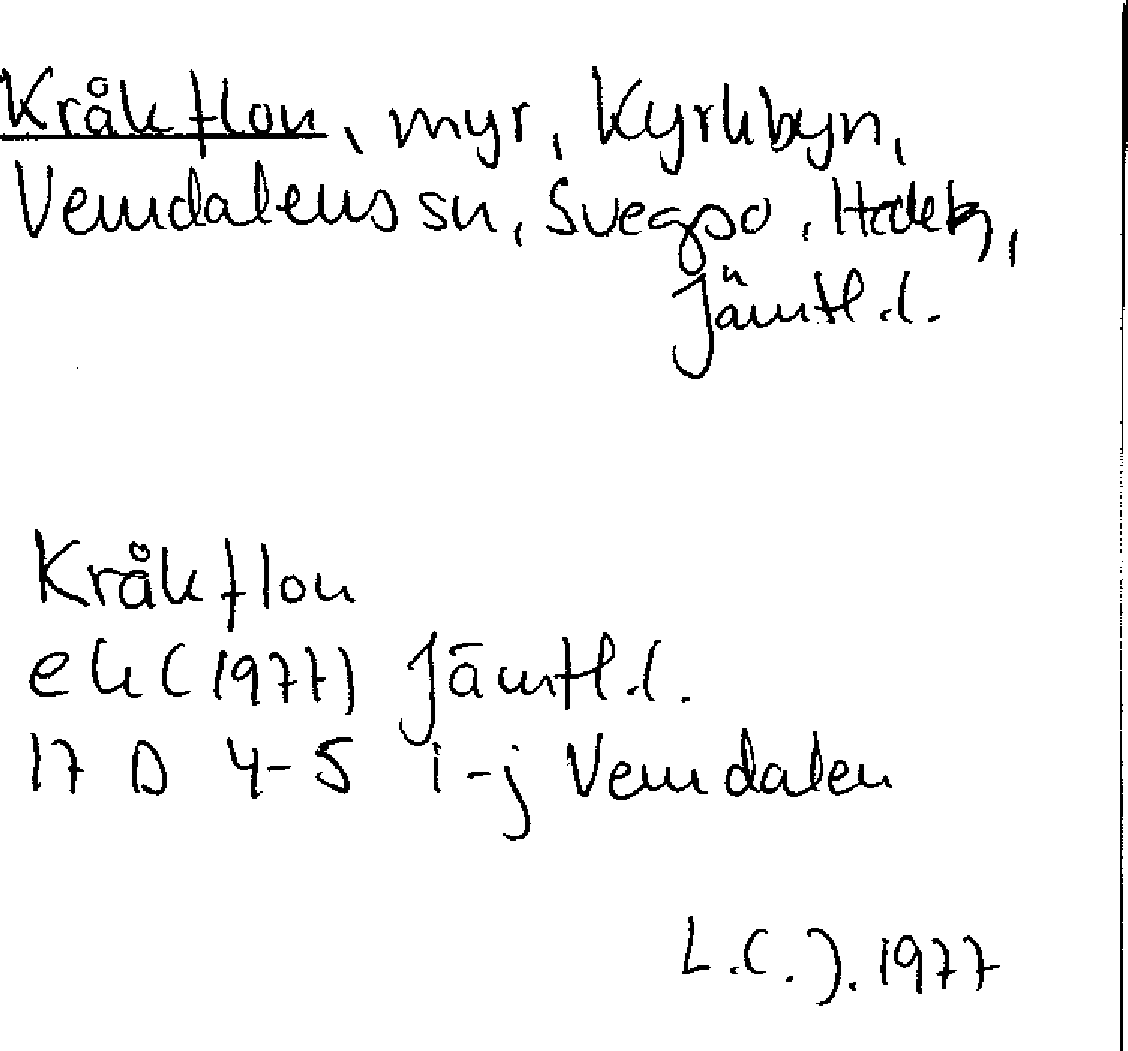 Kråkflon, myr, Kyrkbyn,
Vemdalens sn, Svegs so,
Jämtl.l.
Kråkflon
ek (1977) Jämtl.l.
17 D 4-5 i-j Vemdalen
L.C.J. 1977